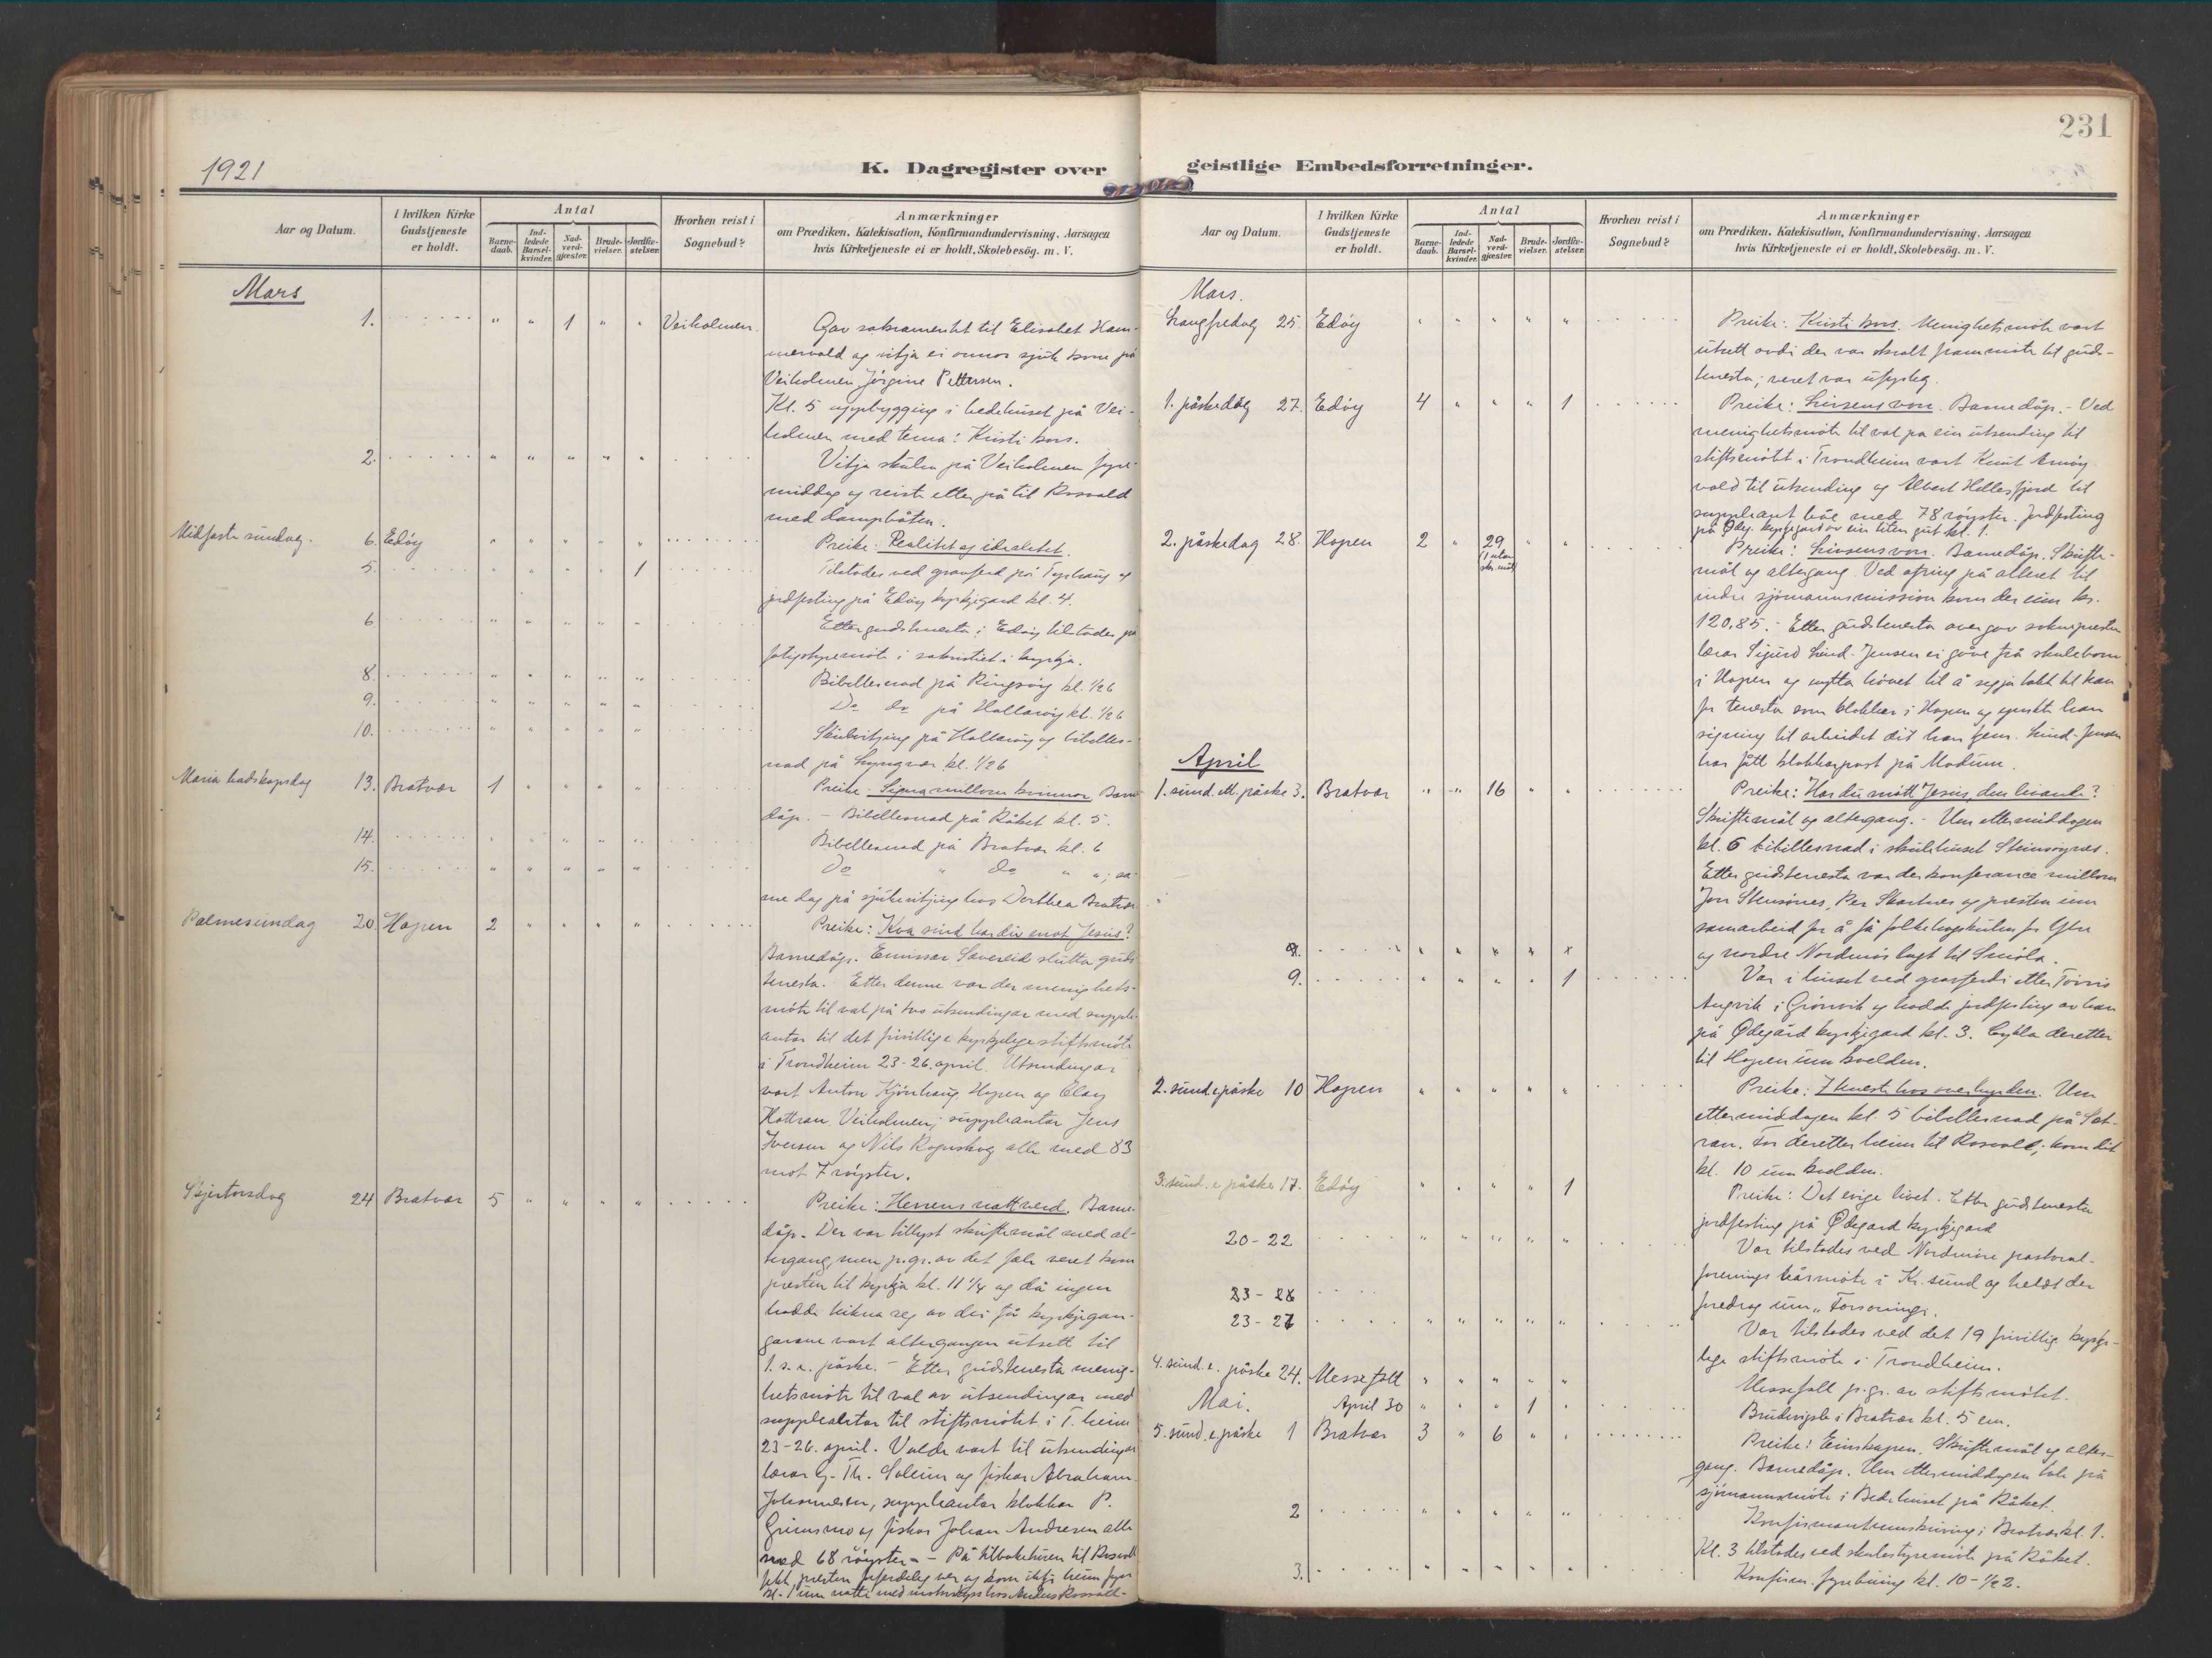 1921
K. Dagregister over
Aar og Datum.
I hvilken Kirke Gudstjeneste er holdt.
Antal
Barne-daab.
Ind-ledede Barsel-kvinder.
Nad-verd-gjæster.
Brude-vielser.
Jordfæ-stelser.
Hvorhen reist i Sognebud?
Anmærkninger
om Prædiken, Katekisation, Konfirmandundervisning, Aarsagen
hvis Kirketjeneste ei er holdt, Skolebesög. m. V.
Mars
1. " " 1 " " Veiholmen. Gav sakramentet til Elisabet Ham-
mervold og vitja ei onnor sjuk kone på
Veiholmen Jörgine Pettersen.
Kl. 5 uppbygging i bedehuset på Vei-
holmen med tema: Kristi kors.
2. " " " " " Vitja skulen på Veiholmen fyre-
middag og reiste etter på til Rosvold
med dampbåten.
Midfaste sundag. 6. Edöy " " " " " Preike: Realitet og idealitet.
5. " " " " 1 Tilstades ved gravferd på og
jordfesting på Edöy kyrkjegard kl. 4.
6 " " " " " Etter gudstenesta i Edöy tilstades på
i sakristiet i kyrkja.
8. " " " " " Bibellesnad på Ringsöy kl. ½6
9. " " " " " Do do på Hallaröy kl. ½6
10. " " " " " Skulevitjing på Hallaröy og bibelles-
nad på Lyngvær kl. ½6
Maria bodskapsdag 13. Bratvær 1 " " " " Preike: Signa millom kvinnor. Barne
dåp. – Bibellesnad på Råket kl. 5.
14. " " " " " Bibellesnad på Bratvær kl. 6
15. " " " " " Do " do " "; sa-
me dag på sjukevitjing hos Dorthea Bratvær
Palmesundag 20. Hopen 2 " " " " Preike: Kva sind har du mot Jesus?
Barnedåp. Emissær Sævereid slutta guds
tenesta. Etter denne var der menighets-
möte til val på two utsendingar med supple-
antar til det frivillige kyrkjelege stiftsmöte
i Trondheim 23-26. april. Utsendingar
vart Anton Kjönhaug, Hopen og Olav
Veiholmen; suppleantar Jens
Iversen og Nils Rognskog alle med 83
mot 7 röyster.
Skjertorsdag 24 Bratvær 5 " " " " Preike: Herrens nattverd. Barne-
dåp. Der var tillyst skriftemål med al-
tergang, men p.gr. av det fæle veret kom
presten til kyrkja kl. 11¼ og då ingen
hadde teikna seg av dei få kyrkjegan-
garane vart altergangen utsett til
1. s. e. påske. – Etter gudstenesta menig-
hetsmöte til val av utsendingar med
suppleantar til stiftsmötet i T.heim
23-26. april. Valde vart til utsendingar
lærar G. Th. Soleim og fiskar Abraham
Johannesen, suppleantar klokkar P.
Grimsmo og fiskar Johan Andresen alle
med 68 röyster. – På tilbaketuren til Rosvoll
fekk presten forferdeleg ver og kom ikkje heim fyre
kl. 1 um natti med hos Anders Rosvoll.
231
geistlige Embedsforretninger.
Aar og Datum.
I hvilken Kirke Gudstjeneste er holdt.
Antal
Barne-daab.
Ind-ledede Barsel-kvinder.
Nad-verd-gjæster.
Brude-vielser.
Jordfæ-stelser.
Hvorhen reist i Sognebud?
Anmærkninger
om Prædiken, Katekisation, Konfirmandundervisning, Aarsagen
hvis Kirketjeneste ei er holdt, Skolebesög. m. V.
Mars.
Langfredag 25. Edöy " " " " " Preike: Kristi kors. Menighetsmöte vart
utsett avdi der var skralt frammöte til guds-
tenesta; veret var ufyseleg.
1. påskedag 27. Edöy 4 " " " 1 Preike: Livsens von. Barnedåp. – Ved
menighetsmöte til val på ein utsending til
stiftsmötet i Trondheim vart Knut
vald til utsending og Albert Hellesfjord til
suppleant båe med 78 röyster. Jordfesting
på Ödeg. kyrkjegard av ein liten gut kl. 1.
2. påskedag 28. Hopen 2 " 29 " " Preike: Livsens von. Barnedåp. Skrifte-
(1 utan skr.mål)
mål og altergang. Ved ofring på alteret til
indre sjömannsmission kom der inn kr.
120,85. – Etter gudstenesta overgav soknepresten
lærar Sigurd Lind-Jensen ei gåve frå skuleborn
i Hopen og nytta hövet til å segja takk til han
for tenesta som klokkar i Hopen og ynskte han
signing til arbeidet dit han fer. Lind-Jensen
har fått klokkarpost på Modum.
April
1. sund. ett. påske 3. Bratvær " " 16 " " Preike: Har du mött Jesus, den livande?
Skriftemål og altergang. – Um ettermiddagen
kl. 6 bibellesnad i skulehuset
Etter gudstenesta var der konferance millom
Jon Per og presten um
samarbeid for å få folkehögskulen for Ytre
og nordre Nordmör lagt til Smöla.
9. " " " " 1 Var i huset ved gravferdi etter
i Grönvik og hadde jordfesting av han
på Ödegård kyrkjegard kl. 3. Cykla deretter
til Hopen um kvelden.
2. sund. e påske 10 Hopen " " " " " Preike: I teneste hos overhyrden. Um
ettermiddagen kl. 5 bibellesnad på Set-
ran. For deretter heim til Rosvoll; kom dit
kl. 10 um kvelden.
3. sund. e påske 17. Edöy " " " " 1 Preike: Det evige livet. Etter gudstenesta
jordfesting på Ödegard kyrkjegard
20-22 " " " " " Var tilstades ved Nordmöre pastoral-
forenings vårmöte i Kr.sund og heldt der
foredrag um "Forsoningi.
23-26
23-27 " " " " " Var tilstades ved det 19 frivillig kyrkje-
lege stiftsmöte i Trondheim.
4. sund. e. påske 24. Messefall " " " " " Messefall p.gr. av stiftsmötet.
Mai. April 30 " " " 1 " Brudevigsle i Bratvær kl. 5 em.
5. sund. e påske 1 Bratvær 3 " 6 " " Preike: Einskapen. Skriftemål og alter-
gang. Barnedåp. Um ettermiddagen tale på
sjömannsmöte i Bedehuset på Råket.
2 " " " " " i Bratvær kl. 1.
Kl. 3 tilstades ved skulestyremöte på Råket.
3. " " " " " Konfirm. fyrebuing kl. 10-½2.